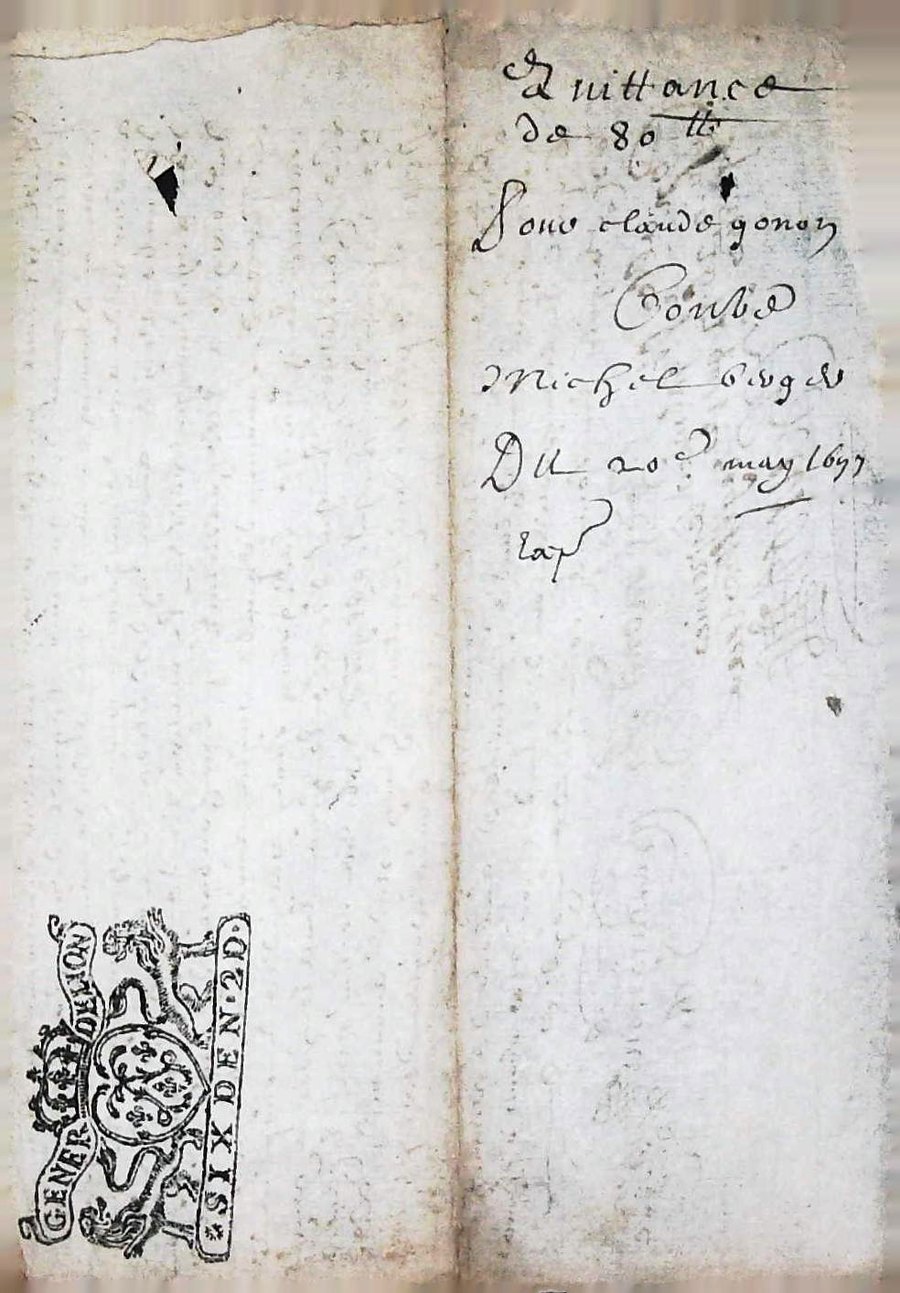 Quittance
de 80 ₶
Pour claude gonon
Contre
Michel berger
Du 20e may 1677
GENER DE LION
SIX DEN · 2D ·